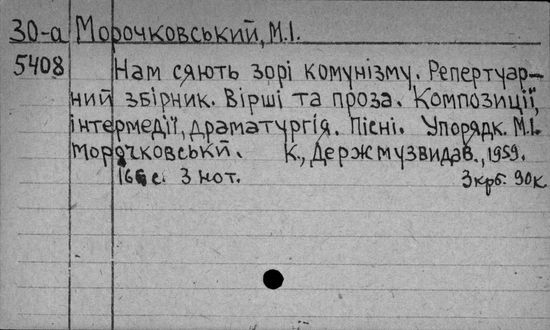 30-а Морочковський, М.І.
5408 Нам сяють зорі комунізму. Репертуар-
ний збірник. Вірші та проза. Композиції,
інтермедії, драматургія. Пісні. Упорядк. М.І.
Морочковськи. К., Держмузвидав., 1959.
166 с. З нот. 3 крб. 90 к